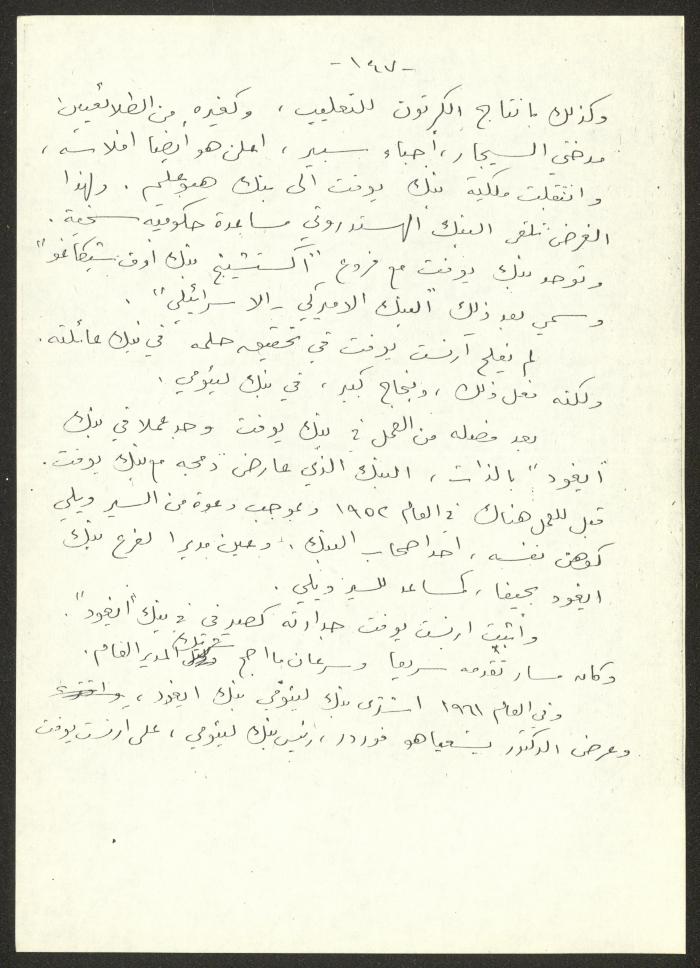 -١٤٧-
وكذلك بانتاج الكرتون للتعليب ، وكغيره من الطلائعيين
مدخني السيجار ، أحباء سبير ، اعلن هو أيضا افلاسه ،
وانتقلت ملكية بنك يوفت الى بنك هبوعليم . ولهذا
الغرض تلقى البنك الهستدروتي مساعدة حكومية سخية .
وتوحد بنك يوفت مع فروع "اكستشينج بنك أوف شيكاغو"
وسمي بعد ذلك "البنك الاميركي - الاسرائيلي" .
لم يفلح ارنست يوفت في تحقيق حلمه في بنك عائلته .
ولكنه فعل ذلك ، وبنجاح كبير ، في بنك ليئومي .
بعد فصله من العمل في بنك يوفت وجد عملا في بنك
"ايغود" بالذات ، البنك الذي عارض دمجه مع بنك يوفت .
قبل للعمل هناك في العام ١٩٥٢ وبموجب دعوة من السير ويلي
كوهن نفسه ، احد اصحاب البنك ، وعين مديرا لفرع بنك
ايغود بحيفا ، كمساعد للسير ويلي .
وأثبت ارنست يوفت جدارته كصيرفي في بنك "ايغود" .
وكان مسار تقدمه سريعا وسرعان ما اصبح المدير العام .
وفي العام ١٩٦١ اشترى بنك ليئومي بنك ايغود ،
وعرض الدكتور يشعياهو فوردر ، رئيس بنك ليئومي ، على ارنست يوفت